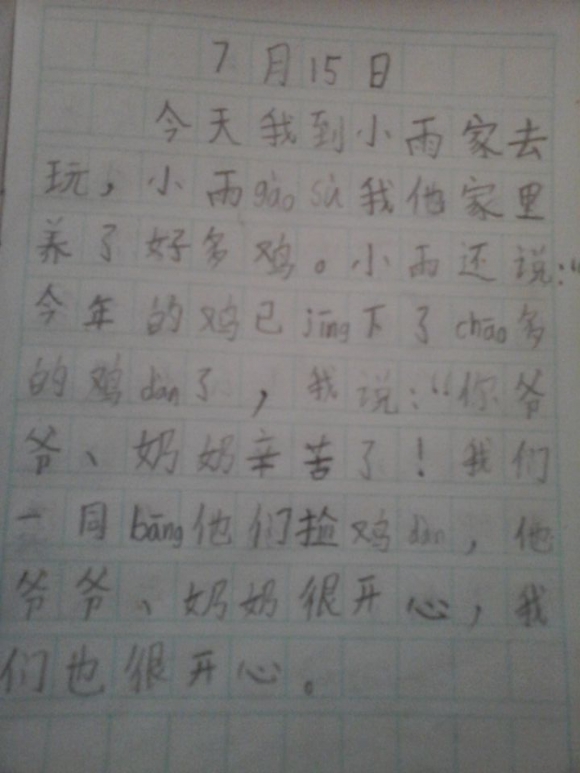 7月15日
今天我到小雨家去
玩，小雨gào sù我他家里
养了好多鸡。小雨还说：“
今年的鸡已jīng下了chāo多
的鸡dàn了，我说：“你爷
爷、奶奶辛苦了！我们
一同bāng他们捡鸡dàn，他
爷爷、奶奶很开心，我
们也很开心。